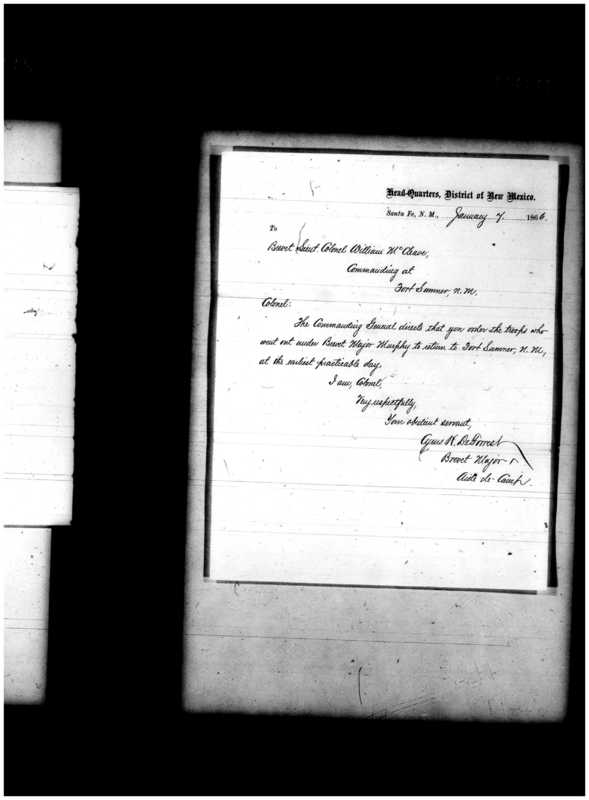 Head-Quarters, District of New Mexico.
Santa Fe, N. M., January 7, 1866.
To
Brevet Lieut. Colonel William McCleave,
Commanding at
Fort Sumner, N.M.
Colonel:
The Commanding General directs that you order the troops who
went out under Brevet Major Murphy to return to Fort Sumner, N.M.,
at the earliest practicable day.
I am, Colonel,
Very respectfully,
Your obedient servant,
Cyrus H. DeForrest
Brevet Major &
Aide de Camp.